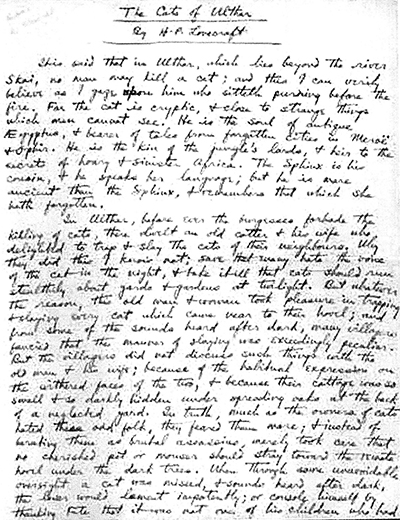 The Cats of Ulthar
By H. P. Lovecraft
It is said that in Ulthar, which lies beyond the river
Skai, no man may kill a cat; and this I can verily
believe as I gaze upon him who sitteth purring before the
fire. For the cat is cryptic, & close to strange things
which men cannot see. He is the soul of antique
Ægyptus, & bearer of tales from forgotten cities in Meroë
& Ophir. He is the kin of the jungle's lords, & heir to the
secrets of hoary & sinister Africa. The Sphinx is his
cousin, & he speaks her language; but he is more
ancient than the Sphinx, & remembers that which she
hath forgotten.
In Ulthar, before ever the burgesses forbade the
killing of cats, there dwelt an old cotter & his wife who
delighted to trap & slay the cats of their neighbours. Why
they did this I know not; save that many hate the voice
of the cat in the night, & take it ill that cats should run
stealthily about yards & gardens at twilight. But whatever
the reason, this old man & woman took pleasure in trapping
& slaying every cat which came near to their hovel; and
from some of the sounds heard after dark, many villagers
fancied that the manner of slaying was exceedingly peculiar.
But the villagers did not discuss such things with the
old man & his wife; because of the habitual expression on
the withered faces of the two, & because their cottage was so
small & so darkly hidden under spreading oaks at the back
of a neglected yard. In truth, much as the owners of cats
hated these odd folk, they feared them more; & instead of
berating them as brutal assassins, merely took care that
no cherished pet or mouser should stray toward the remote
hovel under the dark trees. When through some unavoidable
oversight a cat was missed, & sounds heard after dark,
the loser would lament impotently; or console himself by
thanking Fate that it was not one of his children who had